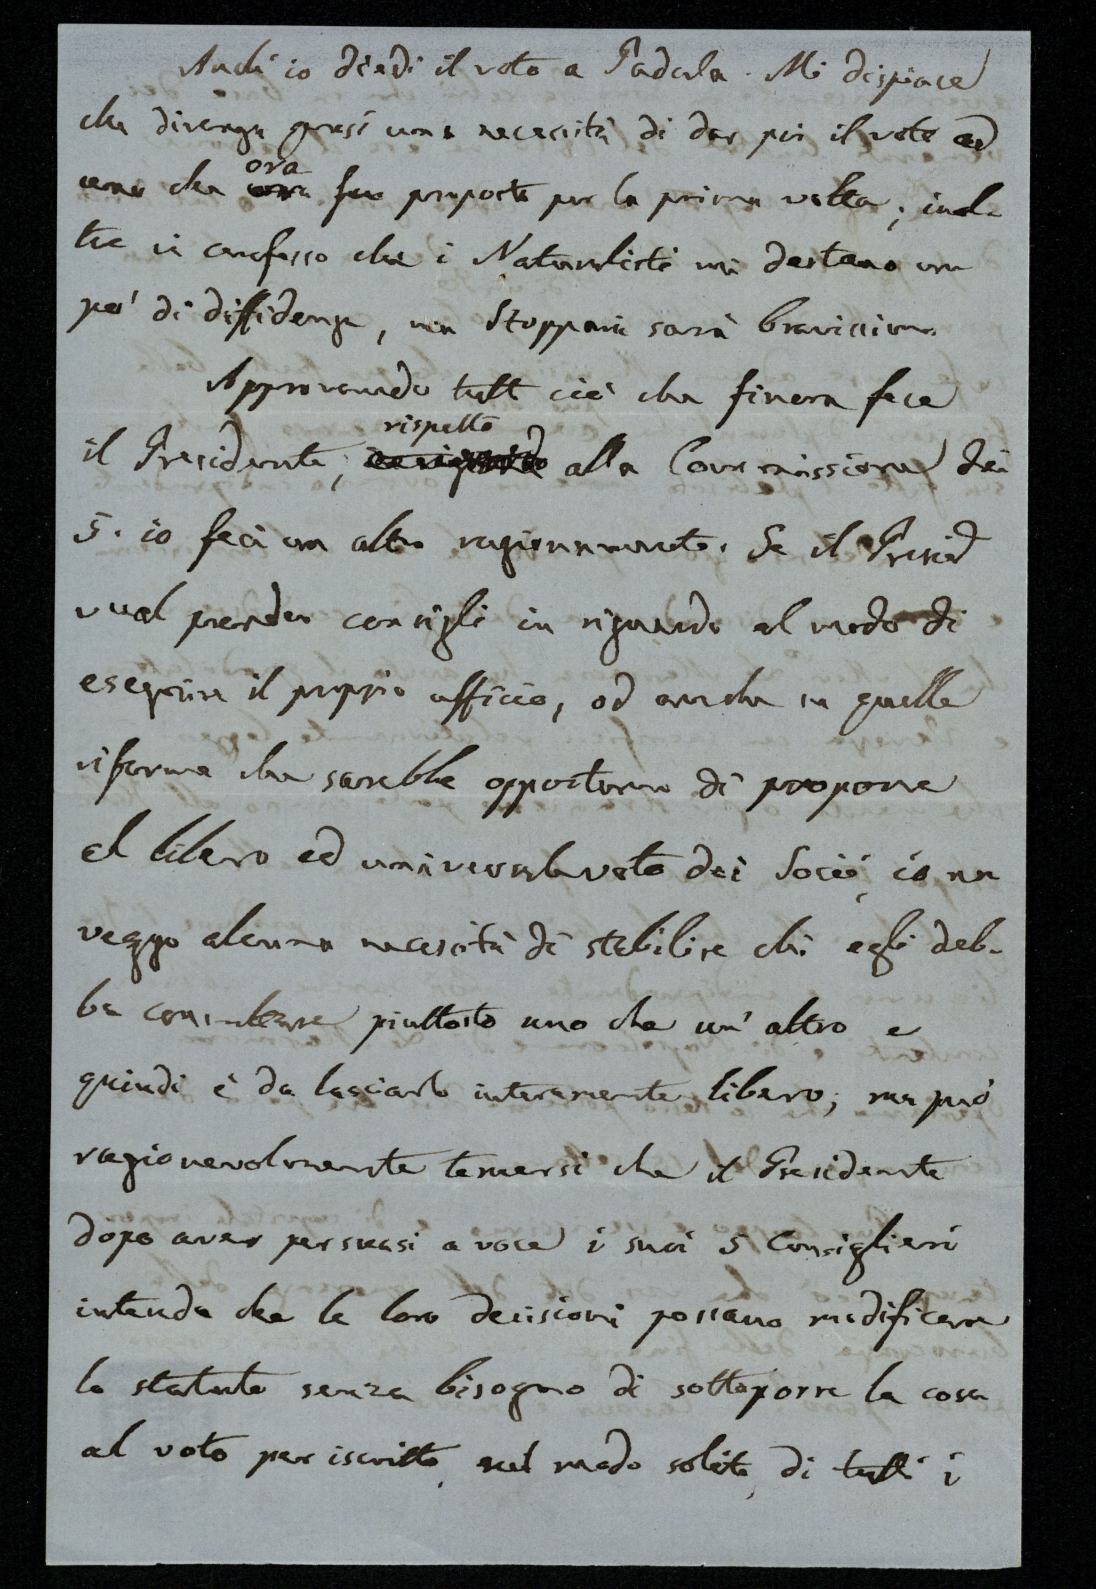 Anch' io diedi il voto a Padula. Mi dispiace
che divenga quasi una necessità di dar poi il voto ad
uno che ora fu proposto per la prima volta; inol-
tre io confesso che i Naturalisti mi destano un
po' di diffidenza, ma Stoppani sarà bravissimo.
Approvando tutt ciò che finora fece
il Presidente, rispetto alla Commissione dei
5. io feci un altro ragionamento. Se il Presid
vuol prender consigli in riguardo al modo di
eseguire il proprio ufficio, od anche su quelle
riforme che sarebbe opportuno di proporre
al libero ed universale voto dei Socii, io non
veggo alcuna necessità di stabilire chi egli deb-
ba consultare piuttosto uno che un' altro e
quindi è da lasciarlo interamente libero; ma può
ragionevolmente temersi che il Presidente
dopo aver persuasi a voce i suoi 5 Consiglieri
intenda che le loro decisioni possano modificare
lo statuto senza bisogno di sottoporre la cosa
al voto per iscritto, nel modo solito, di tutti i